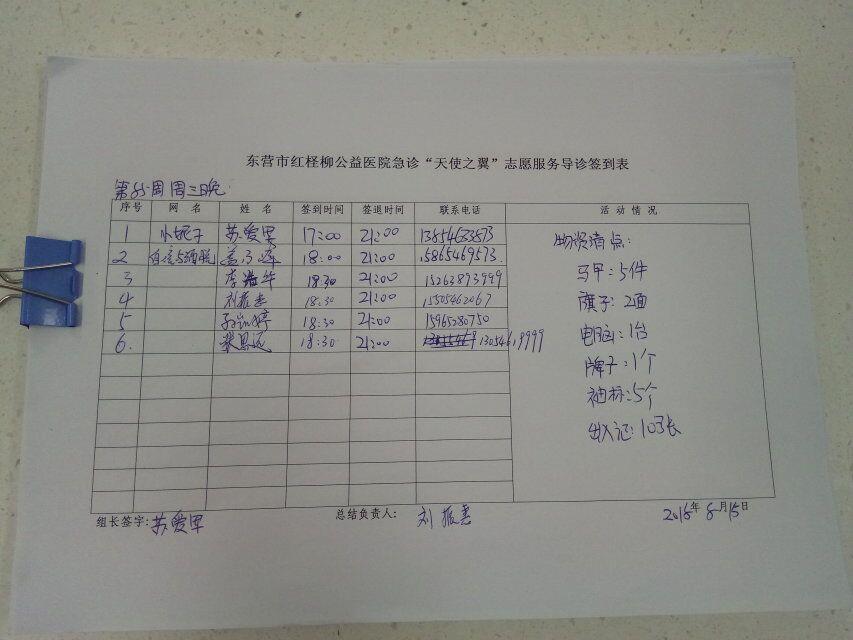 东营市红柽柳公益医院急诊“天使之翼”志愿服务导诊签到表
第85周周三晚
序号 网 名 姓 名 签到时间 签退时间 联系电话 活 动 情 况
1 小妮子 苏爱里 17:00 21:00 13854633573
2 18:00 21:00 15865469573
3 李海华 18:30 21:00 15263893999
4 刘振惠 18:30 21:00 15505462067
5 孙凯婷 18:30 21:00 15965280750
6. 18:30 21:00 13054619999
物资清点:
马甲:5件
旗子:2面
电脑:1台
牌子:1个
袖标:5个
出入证:10张
组长签字:苏爱里 总结负责人: 刘振惠 2015年 8月15日